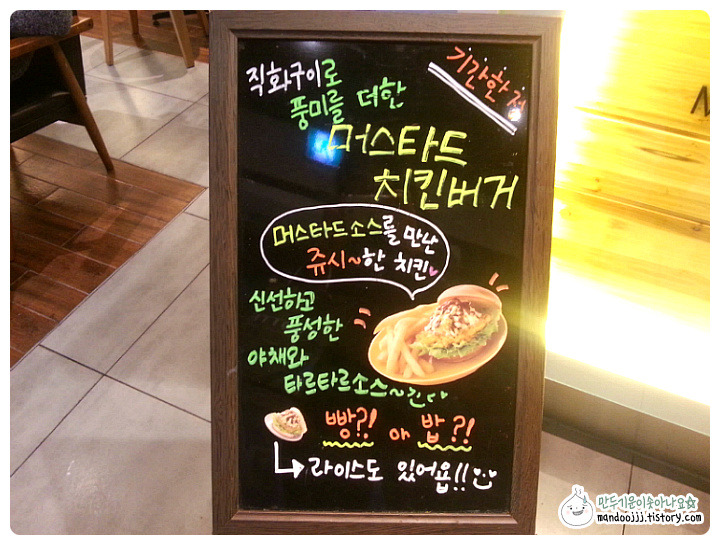 기간한정
직화구이로
풍미를 더한
머스타드
치킨버거
머스타드소스를 만난
쥬시~한 치킨
신선하고
풍성한
야채와
타르타르소스~
빵?! or 밥?!
라이스도 있어욥!!
만두기운이솟아나요
mandoojjj.tistory.com